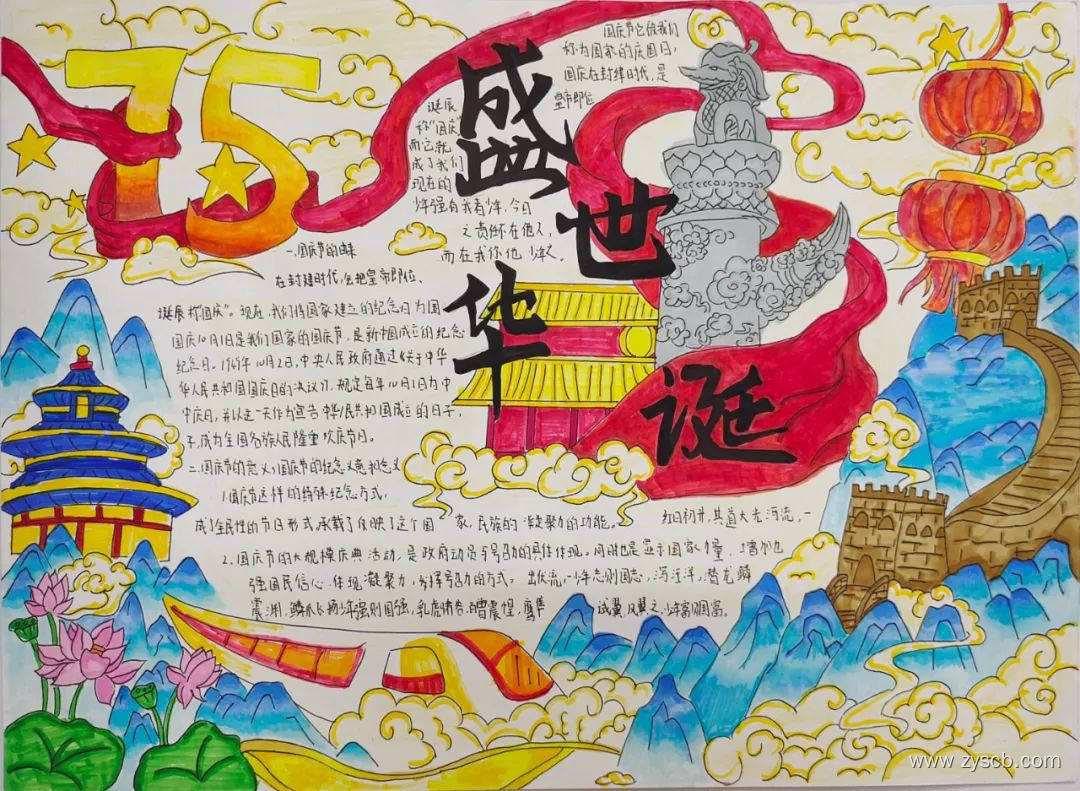 75
盛世华诞
国庆节它被我们
称为国家的庆国日,
国庆在封建时代,是
皇帝即位
诞辰
称"国庆"
而它就
成了我们
现在的
少年强有我看少年,今日
之责任不在他人,
而在我你他少年人。
一.国庆节的由来
在封建时代,会把皇帝即位、
诞辰称"国庆"。现在,我们将国家建立的纪念日为国
国庆10月1日是我们国家的国庆节,是新中国成立的纪念
纪念日。1949年10月2日,中央人民政府通过《关于中华
华人民共和国国庆日的决议》,规定每年10月1日为中
中庆日,并以这一天作为宣告中华人民共和国成立的日子,
子,成为全国各族人民隆重欢庆节日。
二.国庆节的意义:国庆节的纪念义意和念义
1.国庆节这样的特殊纪念方式,
成了全民性的节日形式,承载了反映了这个国家,民族的凝聚力的功能。
红日初升,其道大光河流,一
2.国庆节的大规模庆典活动,是政府动员与号召力的具体体现。同时也是显示国家力量、
强国民信心,体现凝聚力,发挥号召力的方式。出伏流,少年志则国志,泻汪洋,潜龙
震渊,鳞爪飞扬少年强则国强,乳虎啸谷,百兽震惶,鹰隼试翼,风翼之,少年富则国富。
www.zyscb.com